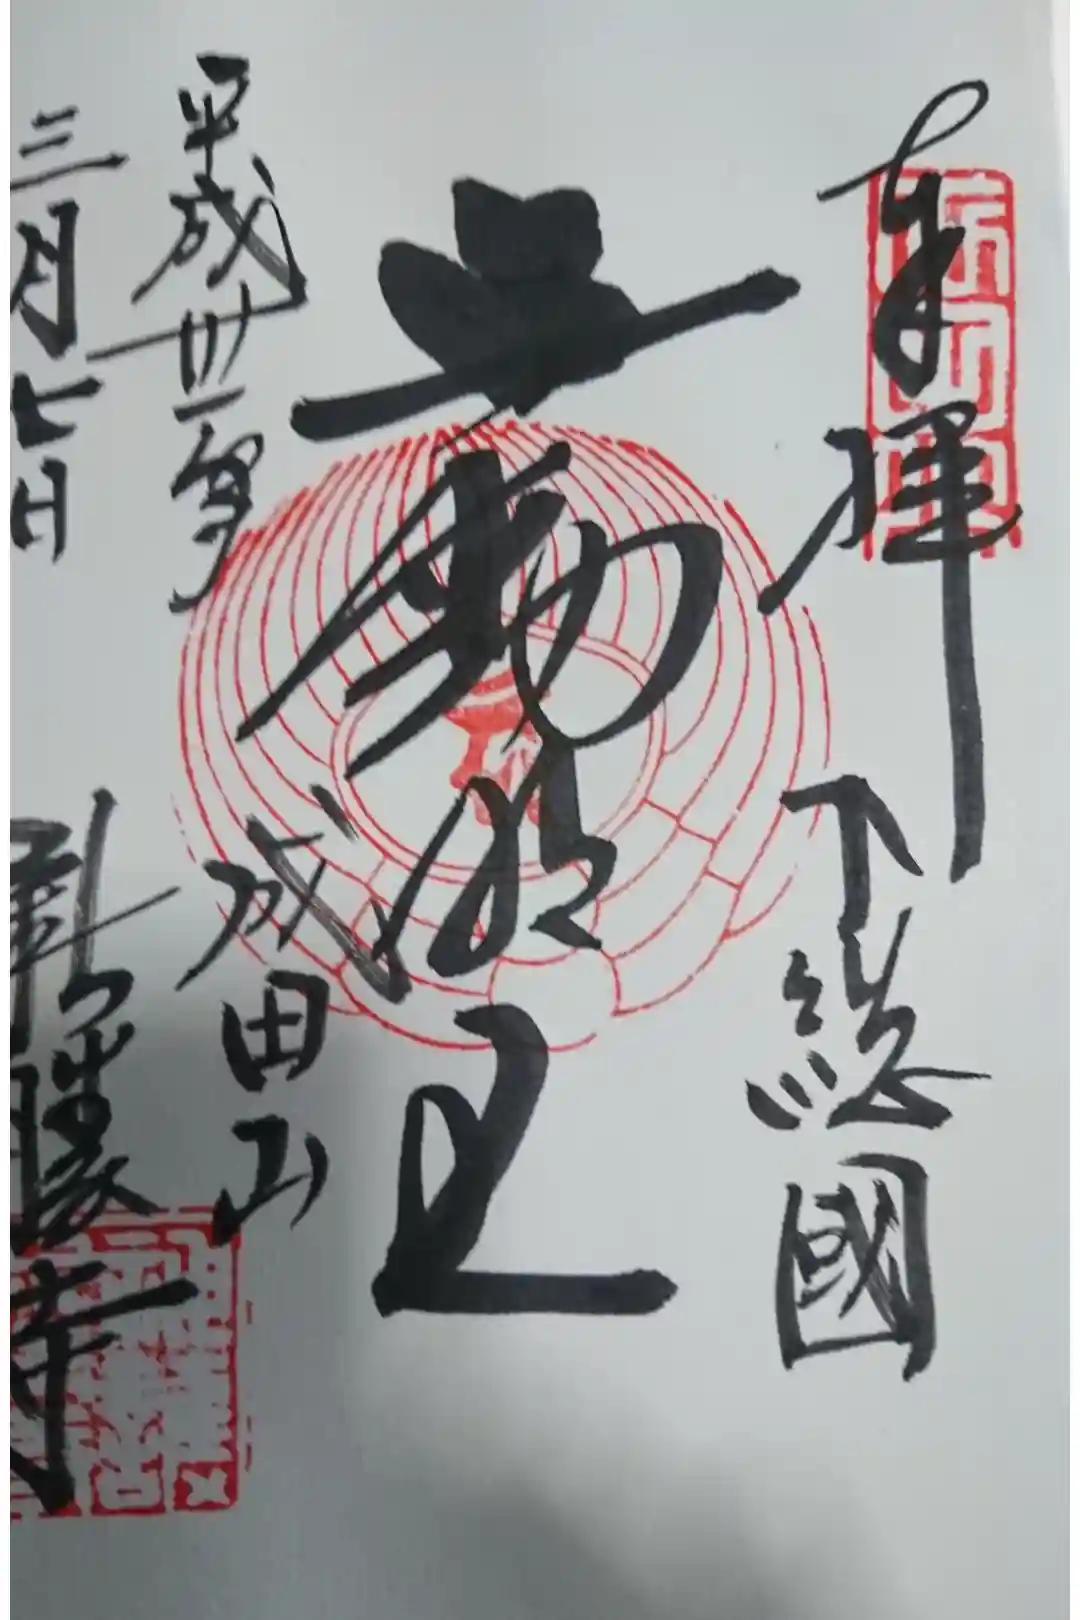 奉拝　下総國
不動明王
成田山
平成卅一年
三月七日
新勝寺